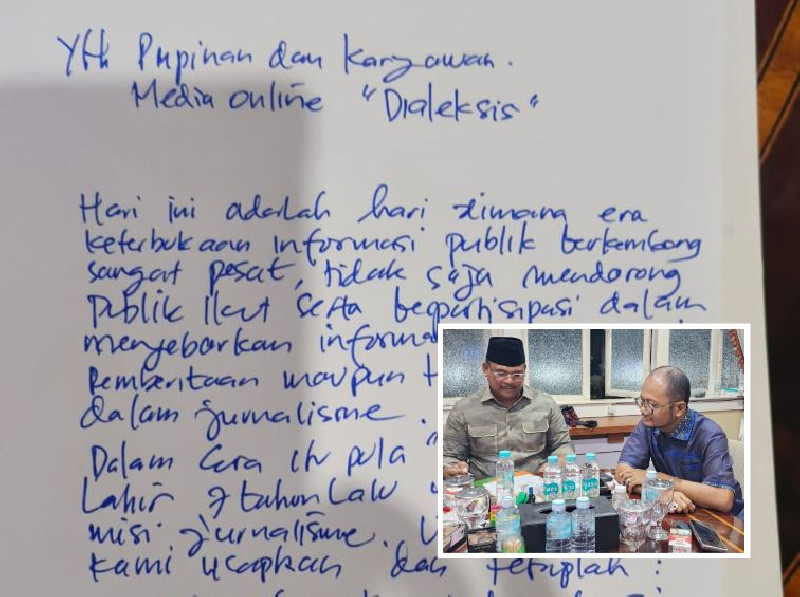 Yth Pupinan dan Karyawan.
Media online "Dialeksis"
Hari ini adalah hari dimana era
keterbukaan informasi publik berkembang
sangat pesat, tidak saja mendorong
publik ikut serta berpartisipasi dalam
menyebarkan
pemberitaan maupun
dalam jurnalisme.
Dalam era itu pula "
Lahir 7 tahun Lalu
misi jurnalisme.
kami ucapkan dan tetaplah :